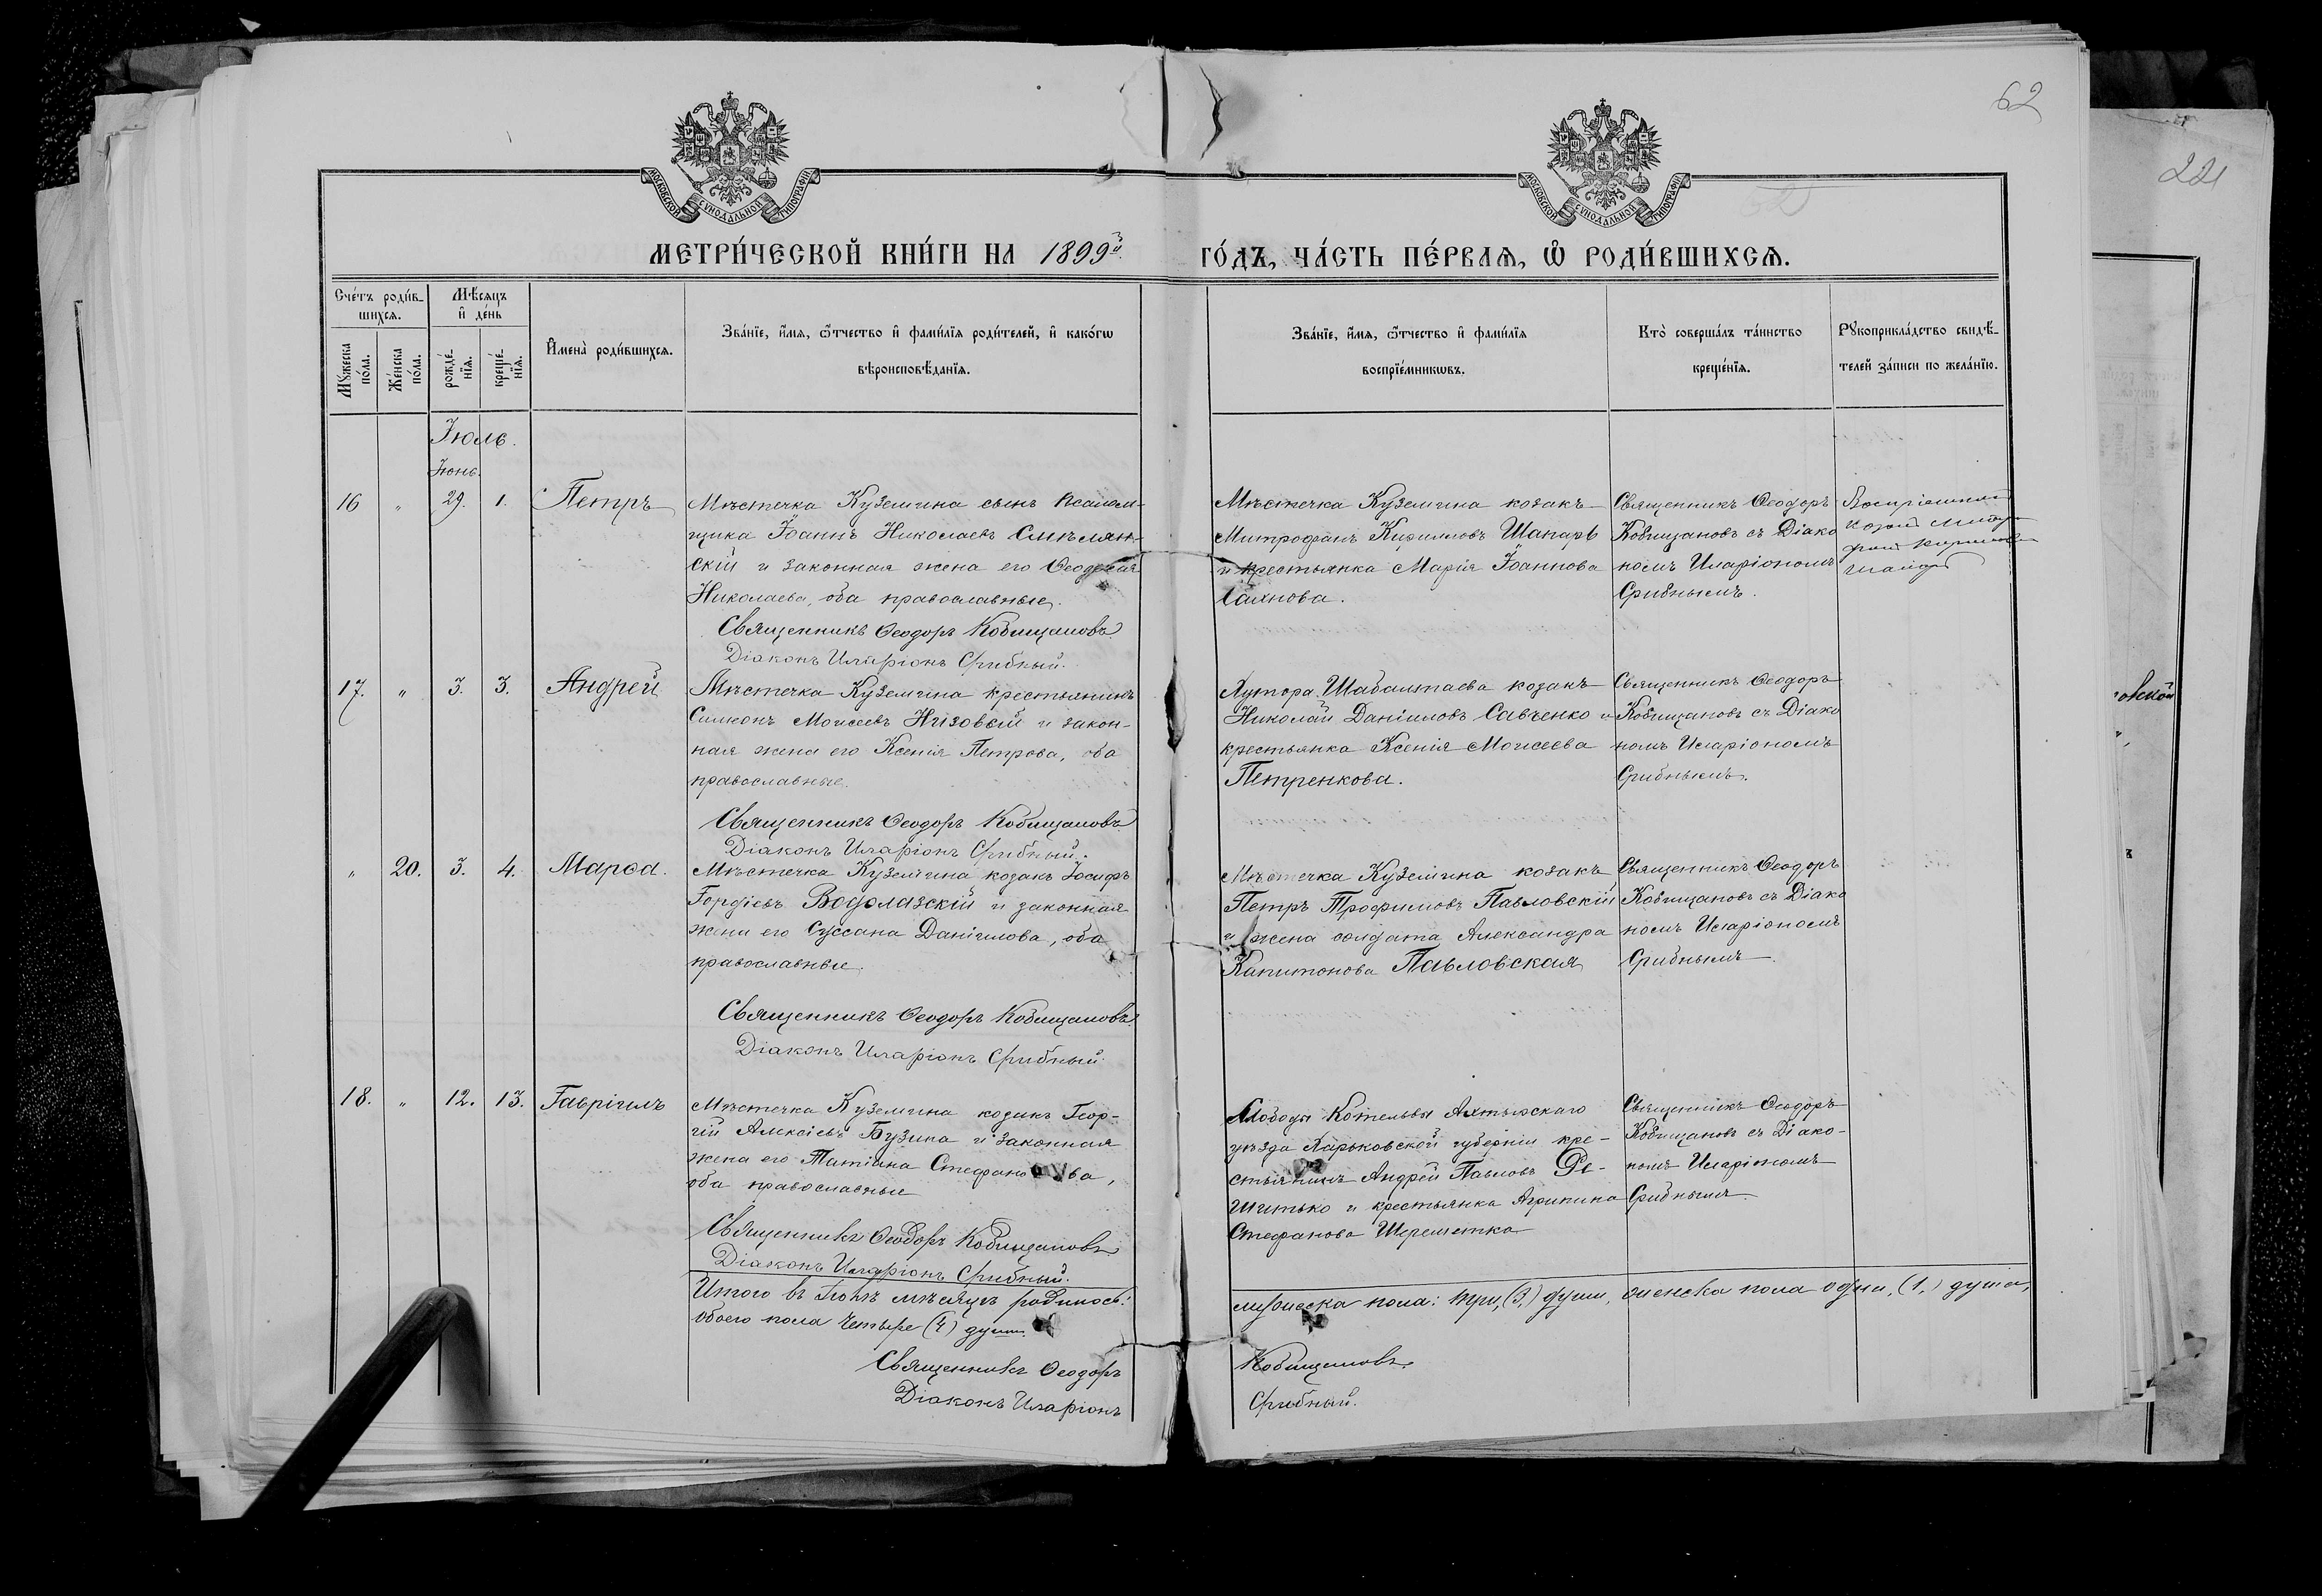 62
221
МОСКОВСКОЙ СѴНОДАЛЬНОЙ ТИПОГРАФІИ
МОСКОВСКОЙ СѴНОДАЛЬНОЙ ТИПОГРАФІИ
МЕТРИ́ЧЕСКОЙ КНИ́ГИ НА 1899й.
ГО́ДЪ, ЧА́СТЬ ПЕ́РВАѦ, Ѡ҆ РОДИ́ВШИХСѦ.
Сче́тъ роди́в-
шихсѧ.
Мѣ́сѧцъ
и҆ де́нь
Мꙋ́жеска
по́ла.
Же́нска
по́ла.
рожде́-
нїѧ.
креще́-
нїѧ.
И҆мена̀ роди́вшихсѧ.
Зва́нїе, и҆́мѧ, ѻ҆́тчество и҆ фами́лїѧ роди́телей, и҆ како́гѡ
вѣроисповѣ́данїѧ.
Зва́нїе, и҆́мѧ, ѻ҆́тчество и҆ фами́лїѧ
воспрїе́мникѡвъ.
Кто̀ соверша́лъ та́инство
креще́нїѧ.
Рꙋкоприкла́дство свидѣ́-
телей за́писи по жела́нїю.
Іюль.
Іюнь.
16 " 29. 1. Петръ
Мѣстечка Куземина сынъ псалом-
щика Іоаннъ Николаевъ Смѣлян-
скій и законная жена его Ѳеодосія
Николаева, оба православные.
Священникъ Ѳеодоръ Кобищановъ
Діаконъ Иларіонъ Срибный.
Мѣстечка Куземина козакъ
Митрофанъ Кирилловъ Шапарь
и крестьянка Марія Іоаннова
Сахнова.
Священникъ Ѳеодоръ
Кобищановъ съ Діако
номъ Иларіономъ
Срибнымъ.
Козакъ
17. " 3. 3. Андрей
Мѣстечка Куземина крестьянинъ
Симеонъ Моисеевъ Низовскій и закон-
ная жена его Ксенія Петрова, оба
православные.
Священникъ Ѳеодоръ Кобищановъ
Діаконъ Иларіонъ Срибный.
Хутора Шабалтаева козакъ
Николай Даніиловъ Савченко и
крестьянка Ксенія Моисеева
Петренкова.
Священникъ Ѳеодоръ
Кобищановъ съ Діако
номъ Иларіономъ
Срибнымъ.
" 20. 3. 4. Марѳа.
Мѣстечка Куземина козакъ Іосифъ
Гордіевъ Водолазскій и законная
жена его Суссана Даніилова, оба
православные.
Священникъ Ѳеодоръ Кобищановъ
Діаконъ Иларіонъ Срибный.
Мѣстечка Куземина козакъ
Петръ Трофимовъ Павловскій
и жена солдата Александра
Капитонова Павловская
Священникъ Ѳеодоръ
Кобищановъ съ Діако
номъ Иларіономъ
Срибнымъ
18. " 12. 13. Гавріилъ
Мѣстечка Куземина козакъ Геор-
гій Алексіевъ Бузина и законная
жена его Татіана Стефанова,
оба православные
Священникъ Ѳеодоръ Кобищановъ
Діаконъ Иларіонъ Срибный.
Слободы Котельвы Ахтырскаго
уѣзда Харьковской губерніи кре-
стьянинъ Андрей Павловъ Ре-
шитько и крестьянка Агрипина
Стефанова Шереметка
Священникъ Ѳеодоръ
Кобищановъ съ Діако-
номъ Иларіономъ
Срибнымъ
Итого въ Іюлѣ мѣсяцѣ родилось:
обоего пола четыре (4) души
мужеска пола: три, (3,) души, женска пола одна, (1,) душа,
Священникъ Ѳеодоръ
Кобищановъ.
Діаконъ Иларіонъ
Срибный.